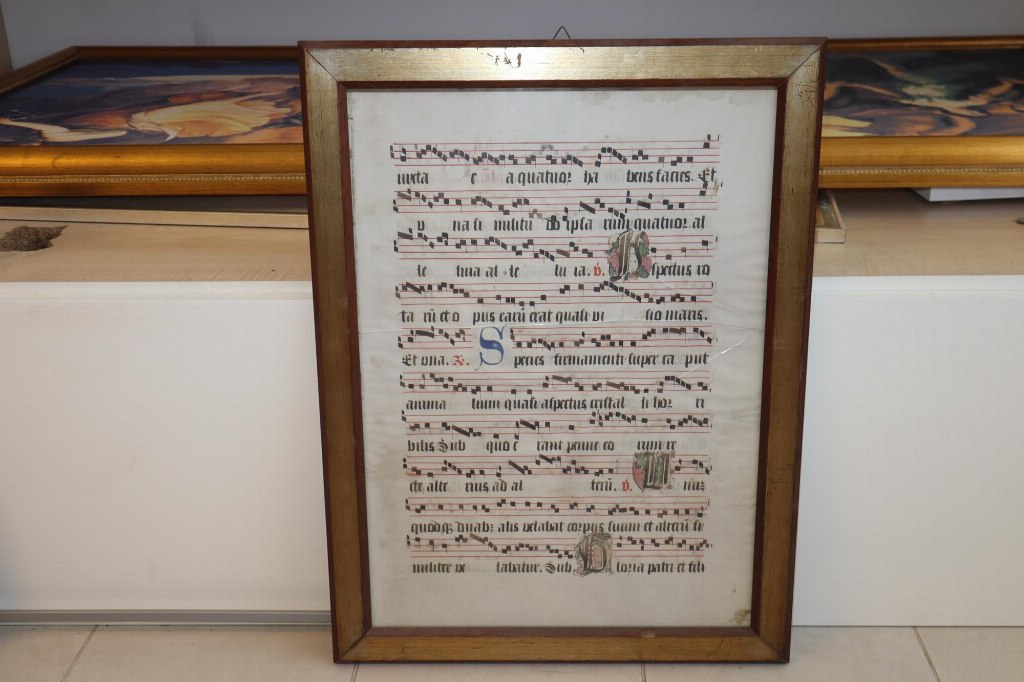 iuxta e a quatuor ha bens facies. Et
v na si militu do ipsa rum quatuor al
le luia al le lu ia. v. Aspectus ro
ta rū et o pus earū erat quasi vi sio maris.
Et una. R. Species firmamenti super ca put
anima lium quasi aspectus cristal li hor ri
bilis Sub quo e rant penne eo rum re
cte alte rius ad al terū. v. Unuz
quodqz duabz alis velabat corpus suum et alterū si
militer ve labatur. Sub. Gloria patri et fili